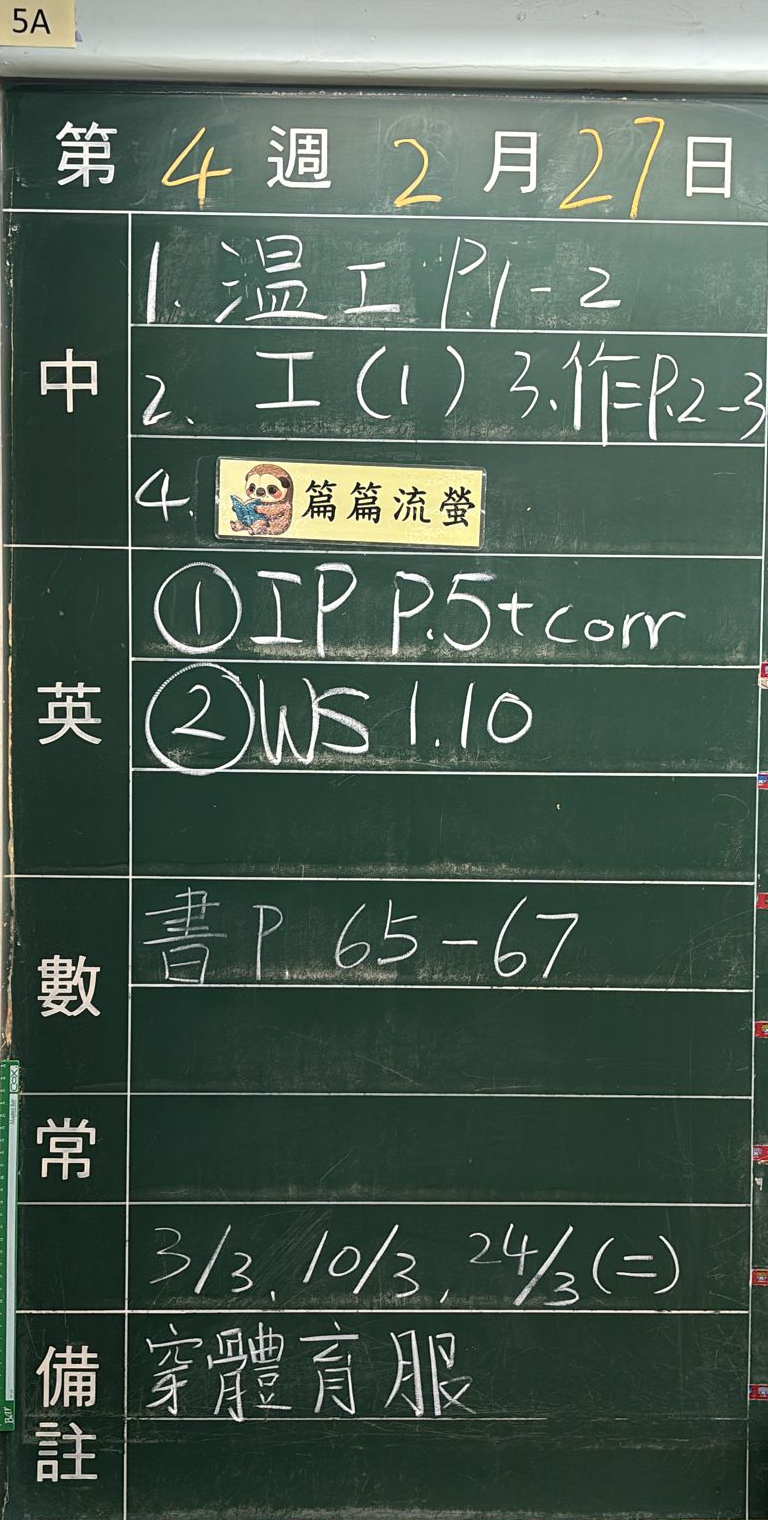 5A
第 4 週 2 月 27 日
中
1. 温工 P.1-2
2. 工(1) 3.作P.2-3
4. 篇篇流螢
英
① IP P.5+corr
② WS 1.10
數
書P. 65-67
常
3/3, 10/3, 24/3(二)
備註
穿體育服